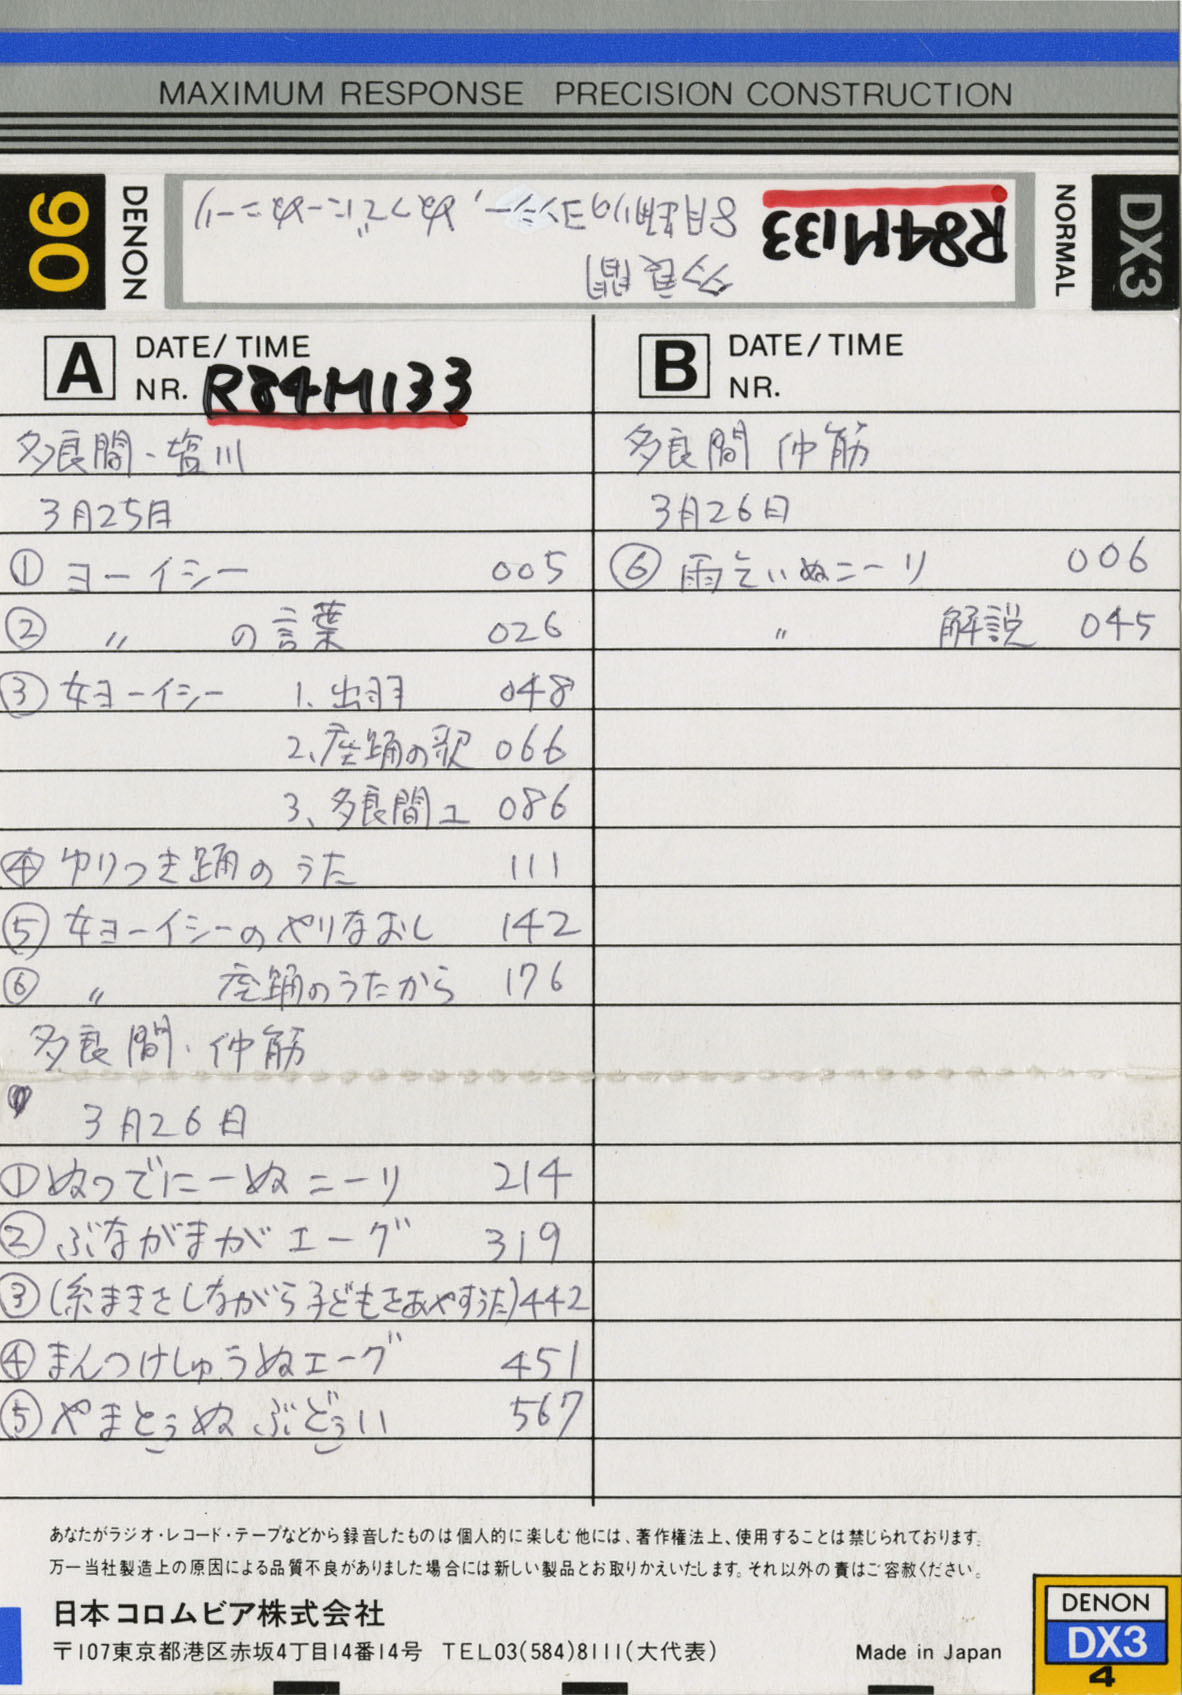 MAXIMUM RESPONSE PRECISION CONSTRUCTION
90
DENON
R84M133
多良間
8月踊りのヨンシー, ぬってにーぬニーリ
NORMAL
DX3
A DATE/TIME
NR. R84M133
多良間・塩川
3月25日
① ヨーイシー 005
② 〃 の言葉 026
③ 女ヨーイシー 1. 出羽 048
2、座踊の歌 066
3、多良間ユ 086
④ ゆりつき踊のうた 111
⑤ 女ヨーイシーのやりなおし 142
⑥ 〃 座踊のうたから 176
多良間・仲筋
3月26日
① ぬってにーぬニーリ 214
② ぶながまがエーグ 319
③ (糸まきをしながら子どもをあやすうた) 442
④ まんつけしゅうぬエーグ 451
⑤ やまとぅぬ ぶどぅい 567
B DATE/TIME
NR.
多良間 仲筋
3月26日
⑥ 雨乞いぬニーリ 006
〃 解説 045
あなたがラジオ・レコード・テープなどから録音したものは個人的に楽しむ他には、著作権法上、使用することは禁じられております。
万一当社製造上の原因による品質不良がありました場合には新しい製品とお取りかえいたします。それ以外の責はご容赦ください。
日本コロムビア株式会社
〒107東京都港区赤坂4丁目14番14号 TEL03(584)8111(大代表)
Made in Japan
DENON
DX3
4